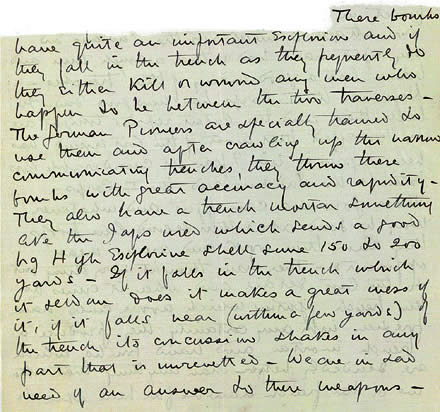 These bombs
have quite an important Explosion and if
they fall in the trench as they frequently do
they either kill or wound any men who
happen to be between the two traverses –
The German Pioneers are specially trained to
use them and after crawling up the narrow
communicating trenches, they throw these
bombs with great accuracy and rapidity –
They also have a trench mortar something
like the Japs used which sends a good
big High Explosive shell some 150 to 200
yards – If it falls in the trench which
it seldom does it makes a great mess of
it, if it falls near (within a few yards) of
the trench its concussion shakes in any
part that is unrevetted – We are in sad
need of an answer to these weapons –